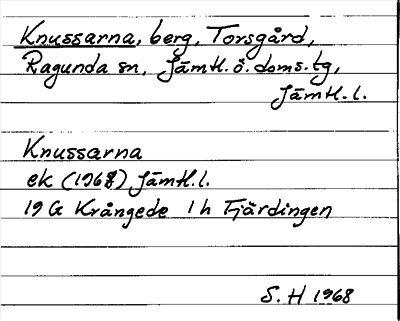 Knussarna, berg, Torsgård,
Ragunda sn, Jämtl. ö. doms. tg,
Jämtl. l.
Knussarna
ek (1968) Jämtl. l.
19 G Krångede 1 h Fjärdingen
S. H 1968